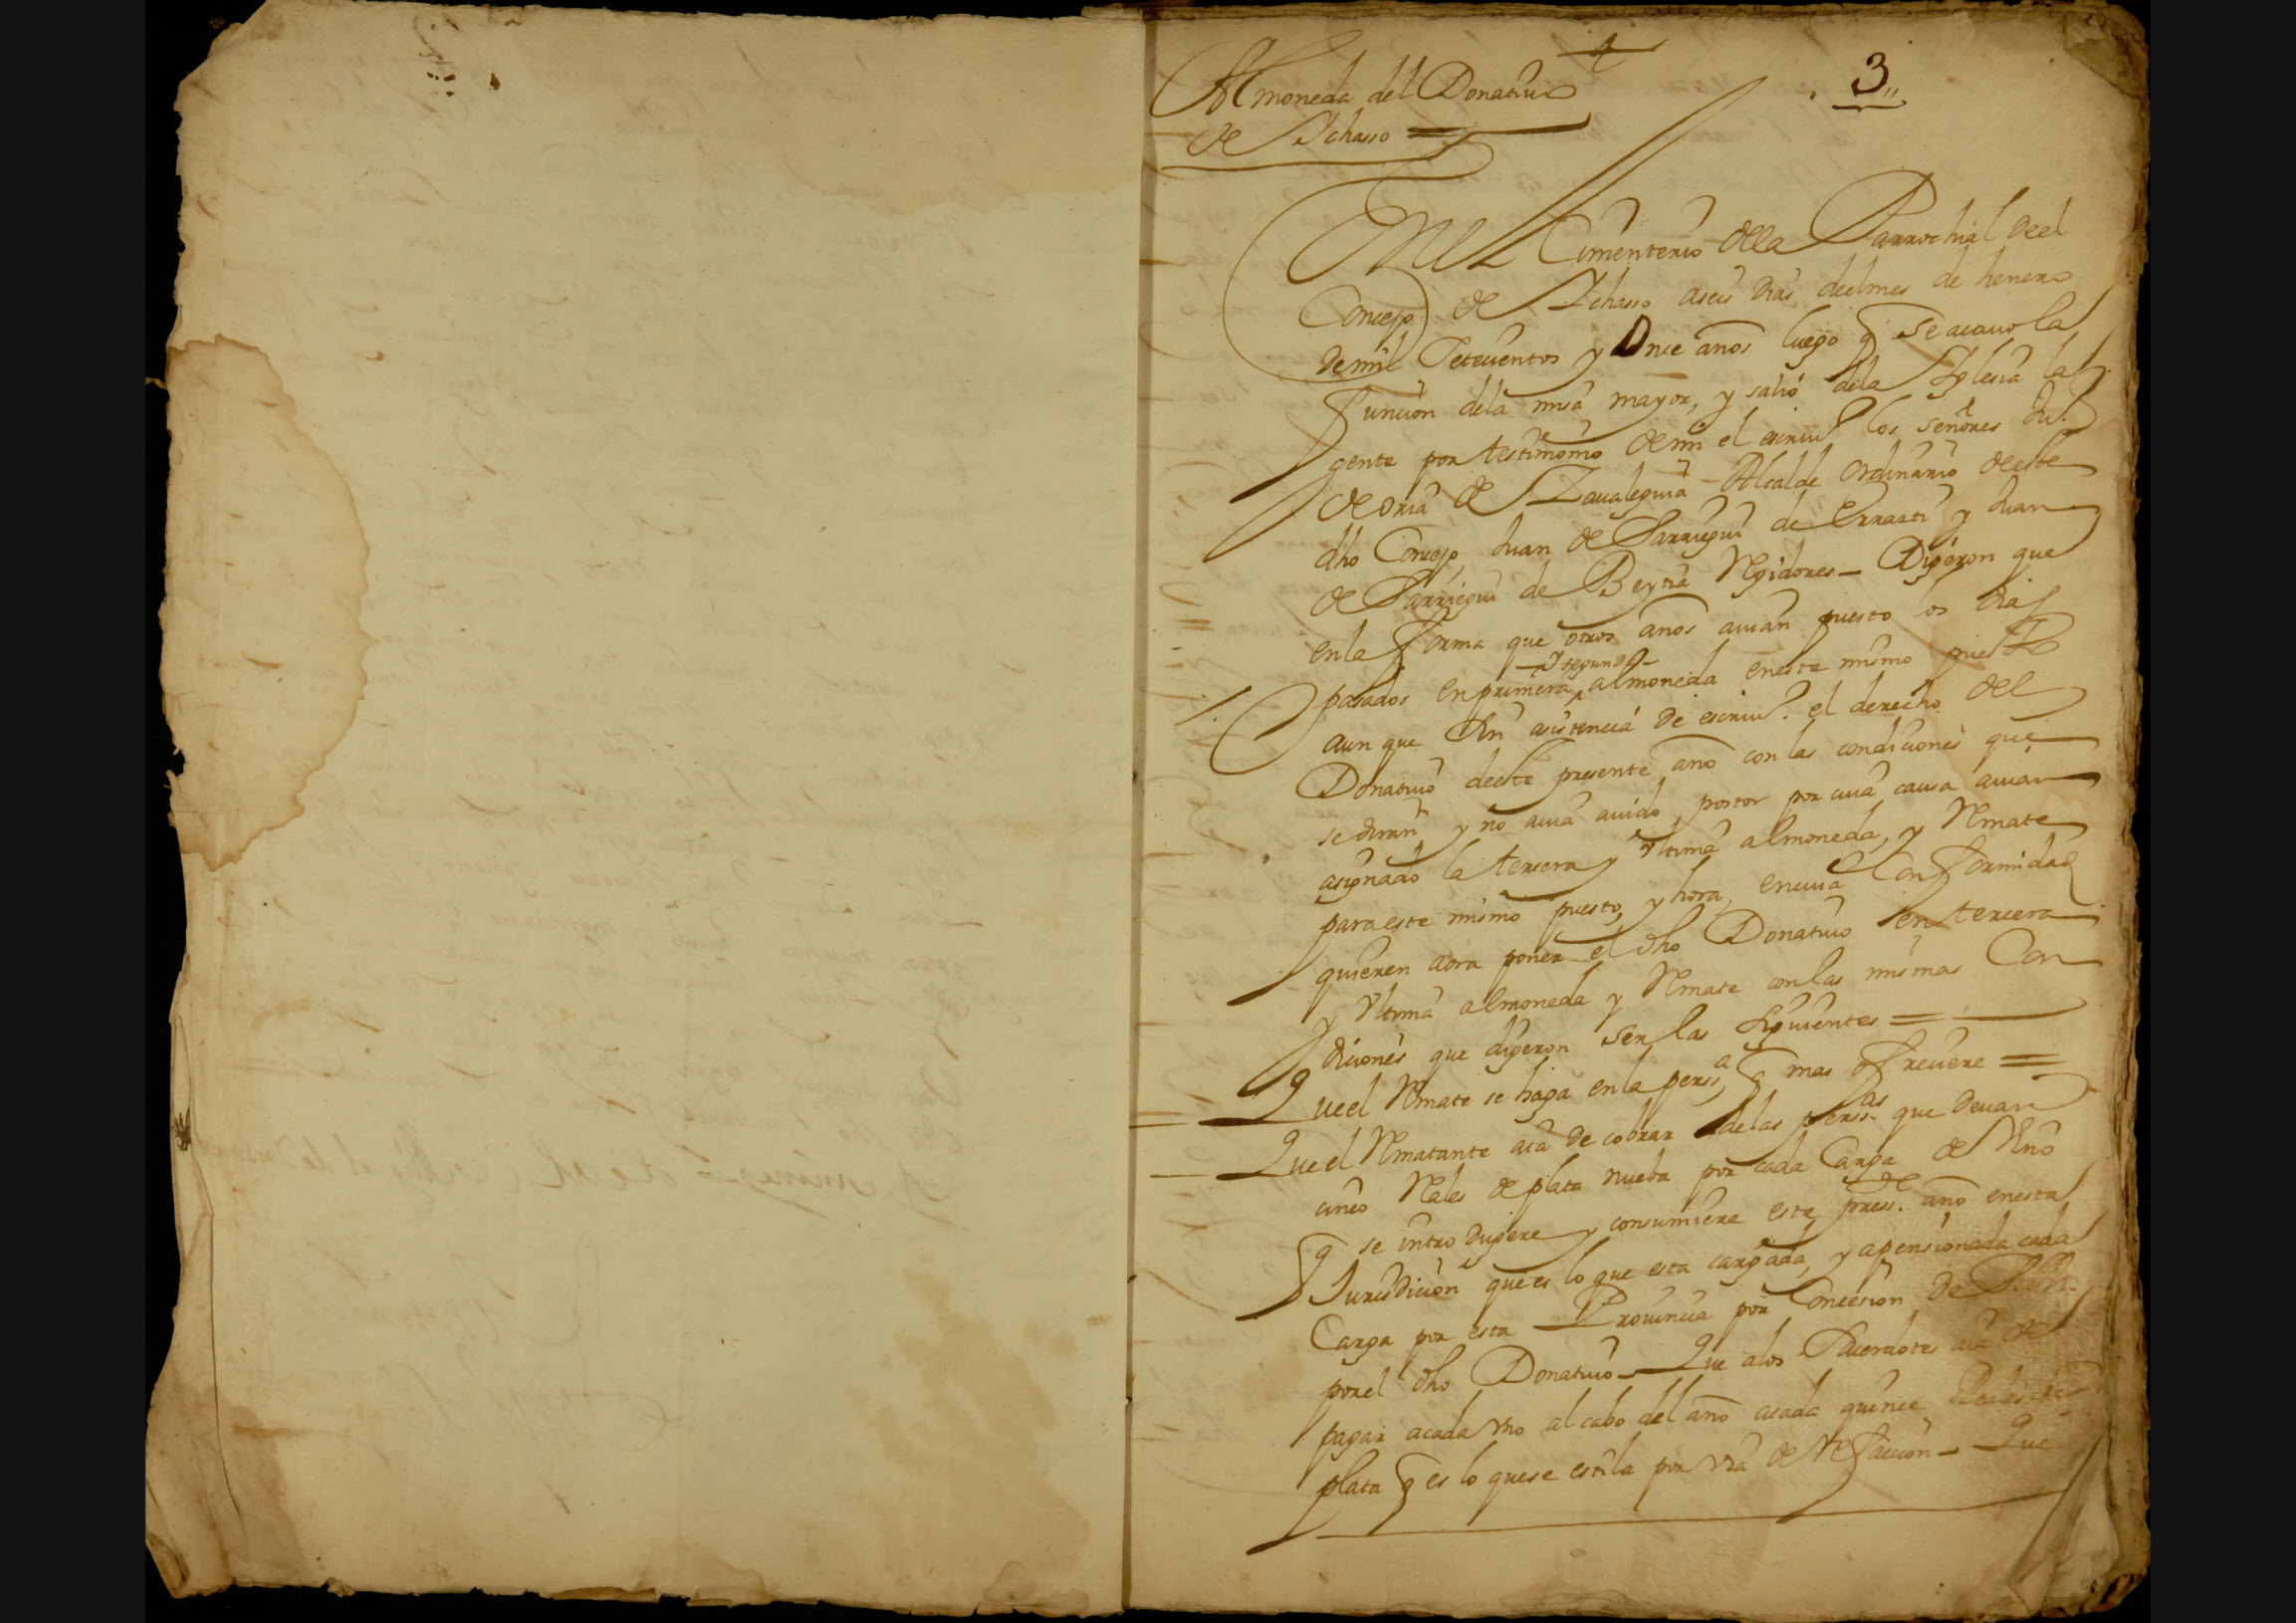 Almoneda del Donatiuo
de Ichasso =
3,,
En el Cimenterio de la Parrochial de el
Concejo de Ichasso a seis dias de el mes de henero
de mil setecientos y Once años luego q̃ se acauo la
funcion de la misa mayor, y salió de la Iglesia la
gente por testimonio de mi el escriu.º los señores Ju.º
de oria de Zaualeguia Alcalde Ordinario de este
dho Concejo, Juan de Sarriegui de Errazti y Juan
de Sarriegui de Beytia Regidores - Digeron que
en la forma que otros años auian puesto los dias
pasados en primera y segunda almoneda en este mismo puesto
aunque sin asistencia de escriu.º el derecho del
Donatiuo de este presente año con las condiciones que
se diran y no auia auido postor por cuia causa auian
asignado la tercera y vltima almoneda, y Remate
para este mismo puesto, y hora, en cuia Conformidad
quieren aora poner el dho Donatiuo en tercera
y vltima almoneda y Remate con las mismas Con
diciones que digeron ser las siguientes =
Que el Remate se haga en la perss.ª q̃ mas ofreciere =
Que el Rematante aia de cobrar de las perss.as que deuan
cinco Reales de plata nueba por cada Carga de Vino
q̃ se introdugere y consumiere este press.te año en esta
Jurisdicion que es lo que esta cargada, y apensionada cada
Carga por esta Prouincia por Concesion de S. M.
por el dho Donatiuo - Que a los Sacerdotes aia de
pagar a cada vno al cabo del año a cada quince Reales de
plata q̃ es lo que se estila por via de Refaccion - Que